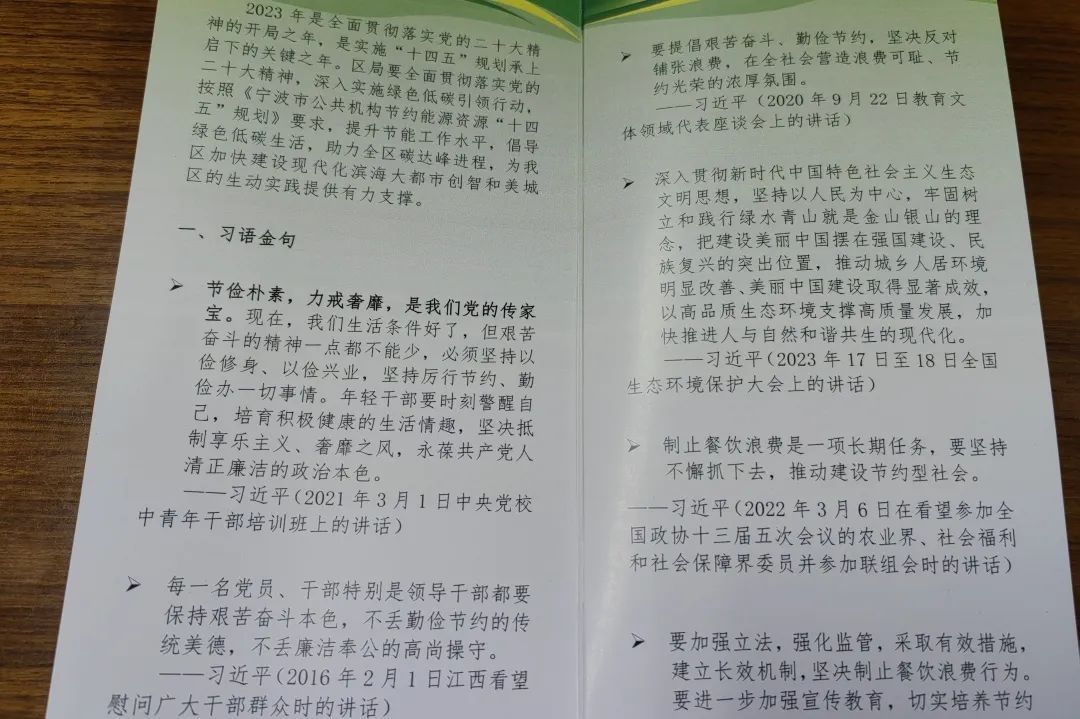 2023 年是全面贯彻落实党的二十大精
神的开局之年，是实施“十四五”规划承上
启下的关键之年。区局要全面贯彻落实党的
二十大精神，深入实施绿色低碳引领行动，
按照《宁波市公共机构节约能源资源“十四
五”规划》要求，提升节能工作水平，倡导
绿色低碳生活，助力全区碳达峰进程，为我
区加快建设现代化滨海大都市创智和美城
区的生动实践提供有力支撑。
一、习语金句
➢ 节俭朴素，力戒奢靡，是我们党的传家
宝。现在，我们生活条件好了，但艰苦
奋斗的精神一点都不能少，必须坚持以
俭修身、以俭兴业，坚持厉行节约、勤
俭办一切事情。年轻干部要时刻警醒自
己，培育积极健康的生活情趣，坚决抵
制享乐主义、奢靡之风，永葆共产党人
清正廉洁的政治本色。
——习近平（2021 年 3 月 1 日中央党校
中青年干部培训班上的讲话）
➢ 每一名党员、干部特别是领导干部都要
保持艰苦奋斗本色，不丢勤俭节约的传
统美德，不丢廉洁奉公的高尚操守。
——习近平（2016 年 2 月 1 日江西看望
慰问广大干部群众时的讲话）
➢ 要提倡艰苦奋斗、勤俭节约，坚决反对
铺张浪费，在全社会营造浪费可耻、节
约光荣的浓厚氛围。
——习近平（2020 年 9 月 22 日教育文
体领域代表座谈会上的讲话）
➢ 深入贯彻新时代中国特色社会主义生态
文明思想，坚持以人民为中心，牢固树
立和践行绿水青山就是金山银山的理
念，把建设美丽中国摆在强国建设、民
族复兴的突出位置，推动城乡人居环境
明显改善、美丽中国建设取得显著成效，
以高品质生态环境支撑高质量发展，加
快推进人与自然和谐共生的现代化。
——习近平（2023 年 17 日至 18 日全国
生态环境保护大会上的讲话）
➢ 制止餐饮浪费是一项长期任务，要坚持
不懈抓下去，推动建设节约型社会。
——习近平（2022 年 3 月 6 日在看望参加全
国政协十三届五次会议的农业界、社会福利
和社会保障界委员并参加联组会时的讲话）
➢ 要加强立法，强化监管，采取有效措施，
建立长效机制，坚决制止餐饮浪费行为。
要进一步加强宣传教育，切实培养节约